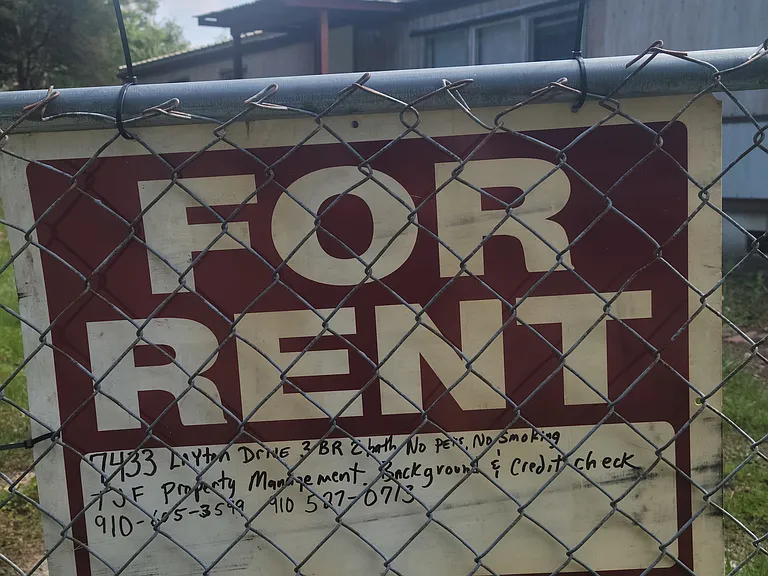 FOR
RENT
7433 Layton Drive 3 BR 2 bath No pets, No smoking
TJF Property Management. Background & Credit check
910- 910 527-0713